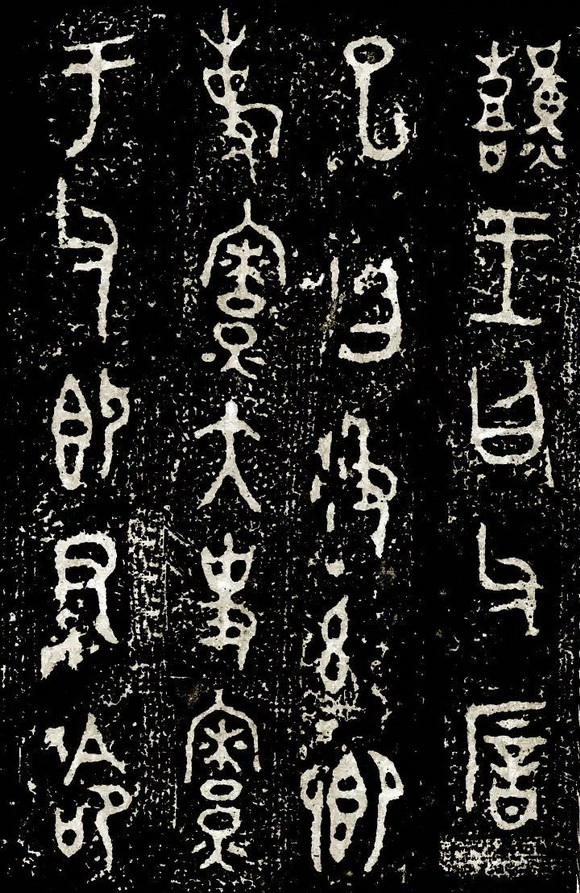 囏王曰父
已曰及茲卿
事寮大史寮
于父即尹命